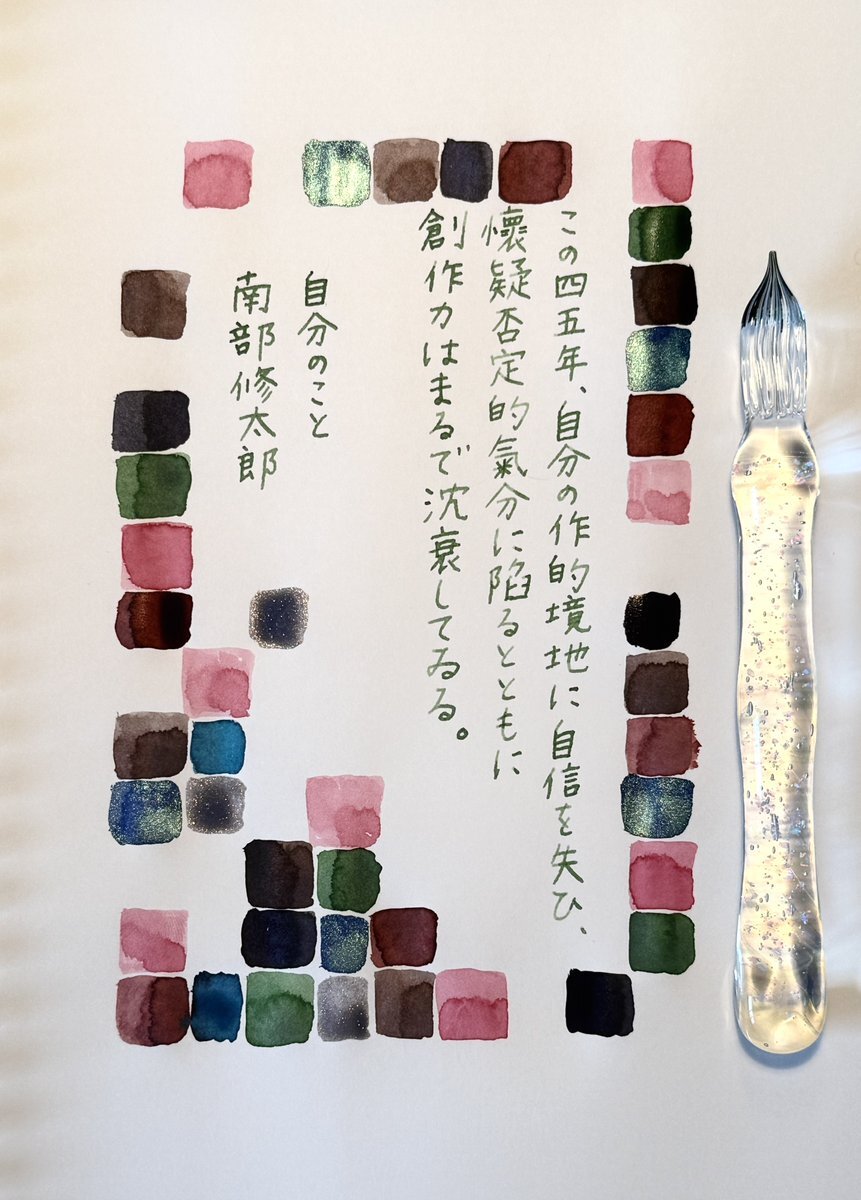 この四五年、自分の作的境地に自信を失ひ、
懐疑否定的氣分に陷るとともに
創作力はまるで沈衰してゐる。
自分のこと
南部修太郎